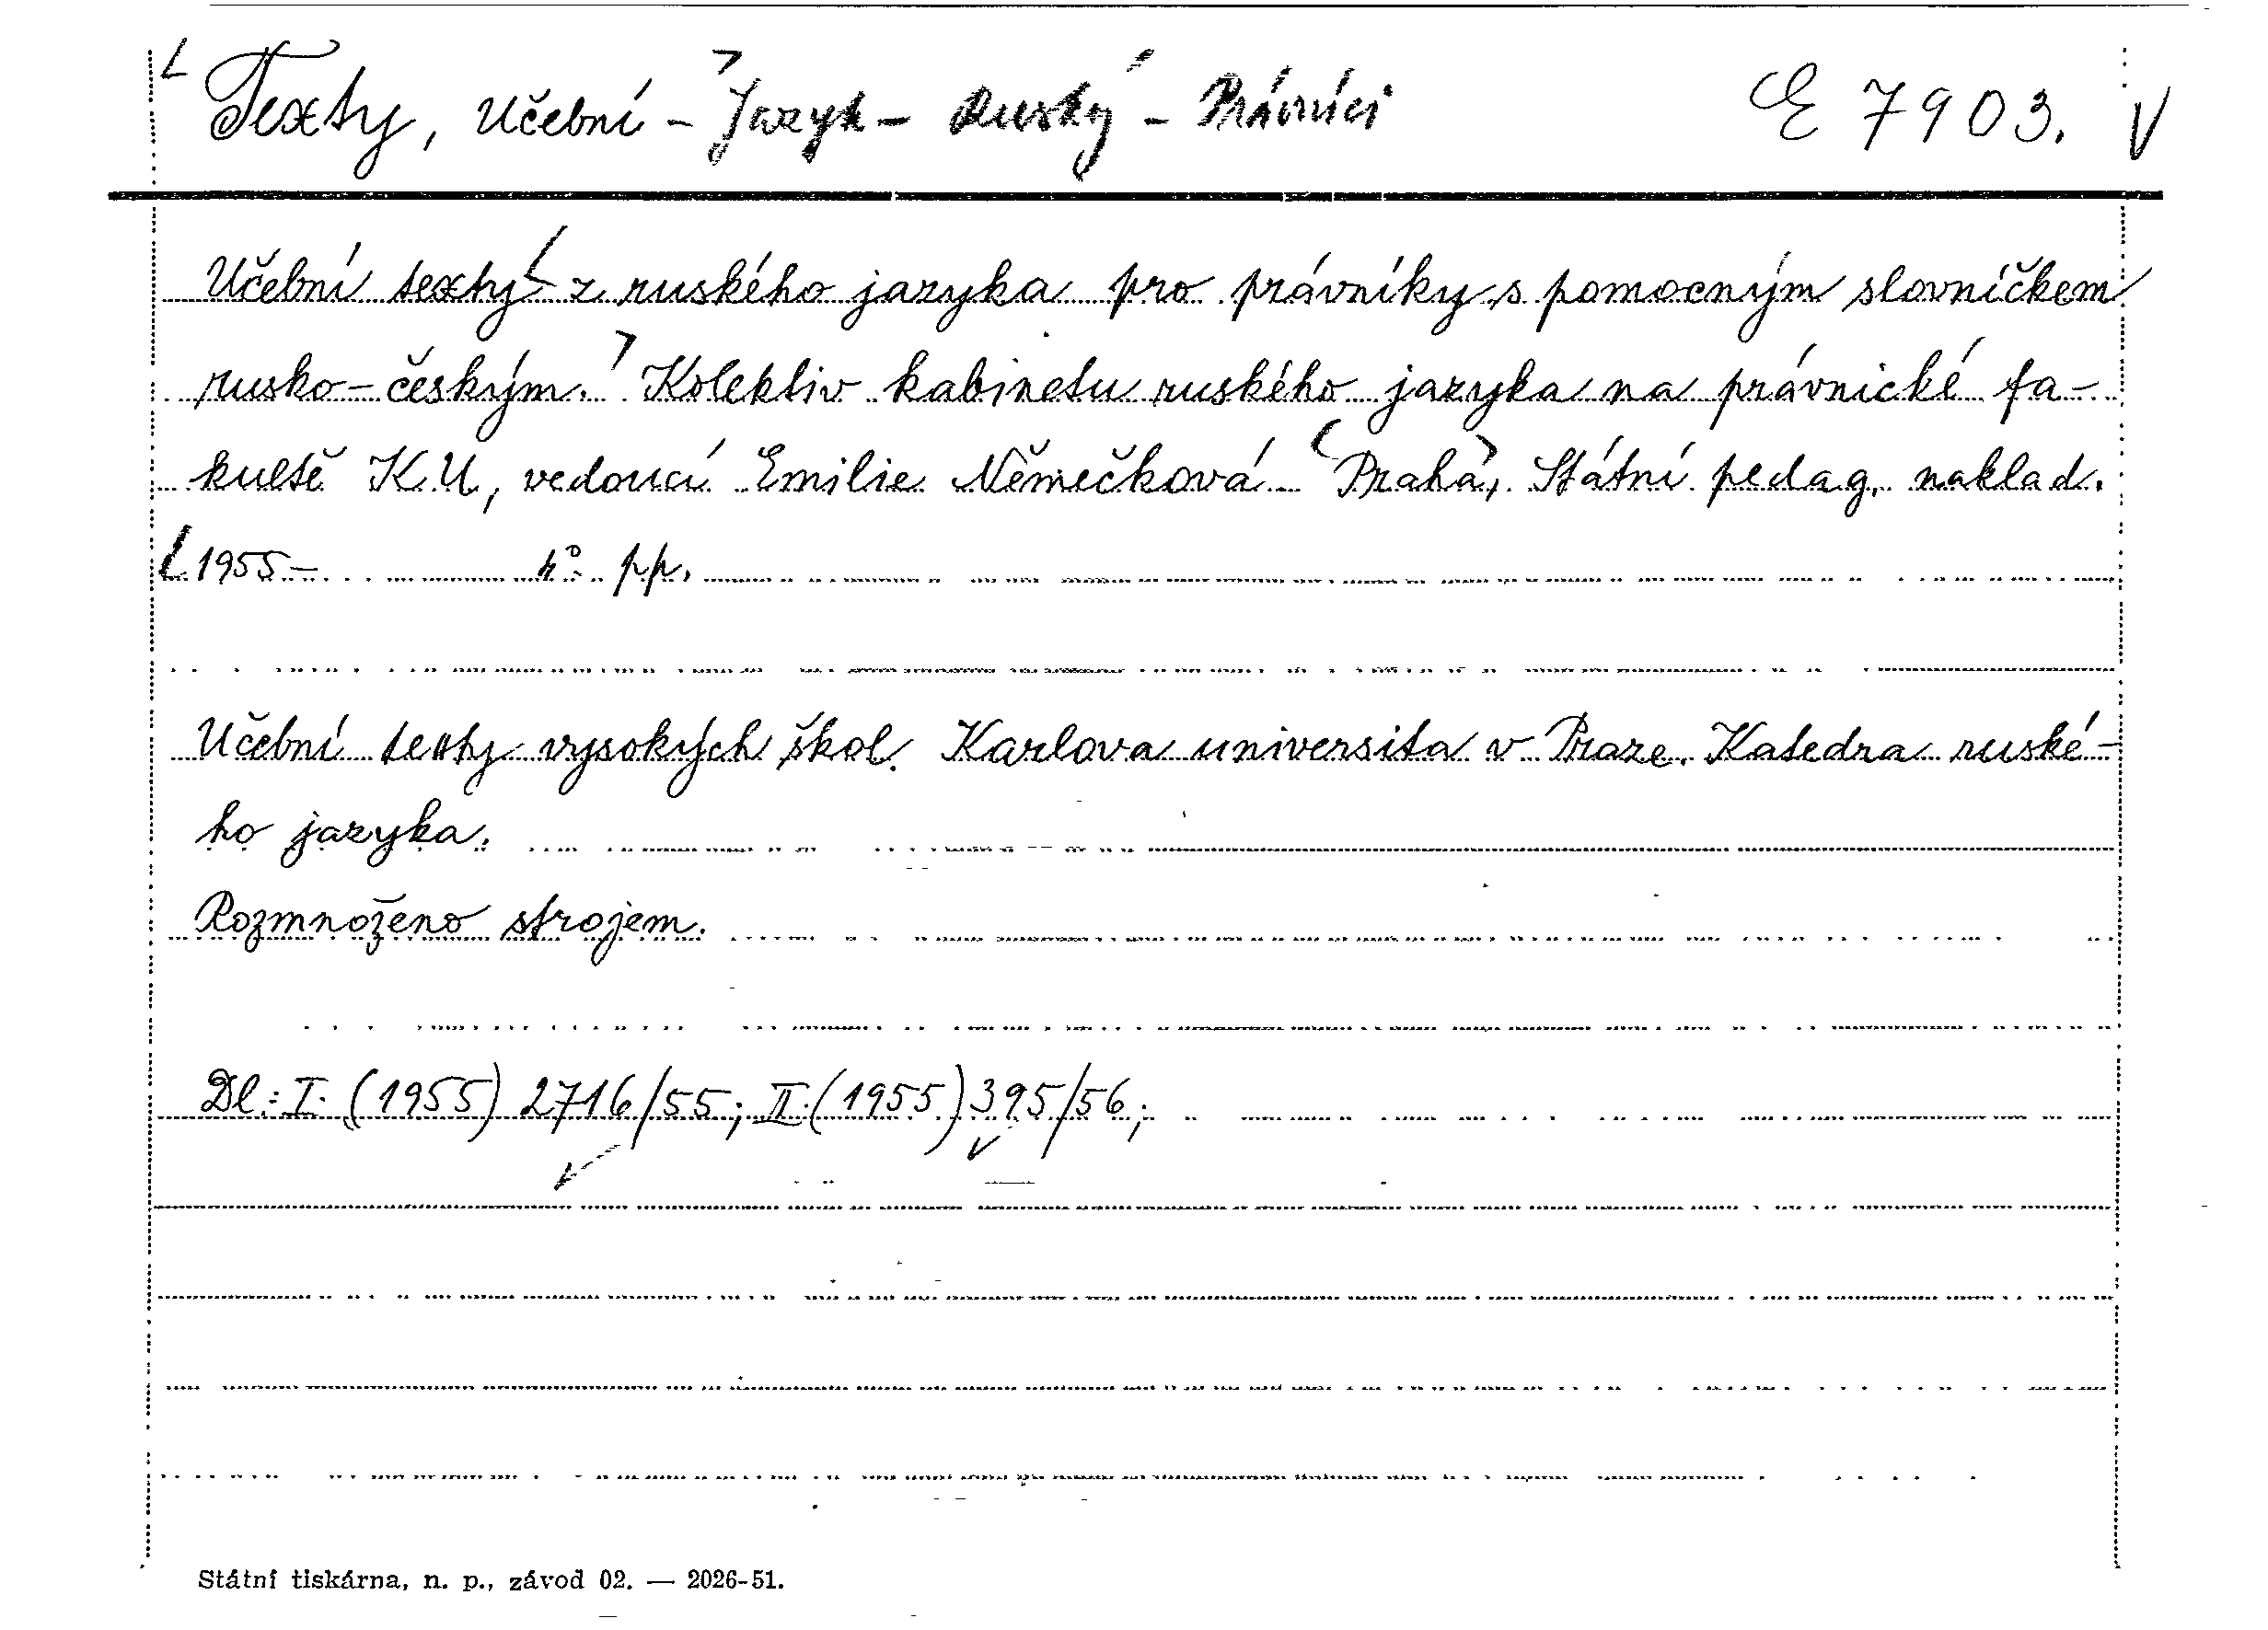 Texty, Učební - Jazyk - Ruský - Právníci E 7903. V
Učební texty z ruského jazyka pro právníky s pomocným slovníčkem
rusko-českým. Kolektiv kabinetu ruského jazyka na právnické fa-
kultě K.U, vedoucí Emilie Němečková Praha, Státní pedag. naklad.
1955- 4° pp.
Učební texty vysokých škol. Karlova universita v Praze. Katedra ruské-
ho jazyka.
Rozmnoženo strojem.
Dl.: I. (1955) 2716/55; II. (1955) 395/56;
Státní tiskárna, n. p., závod 02. — 2026-51.